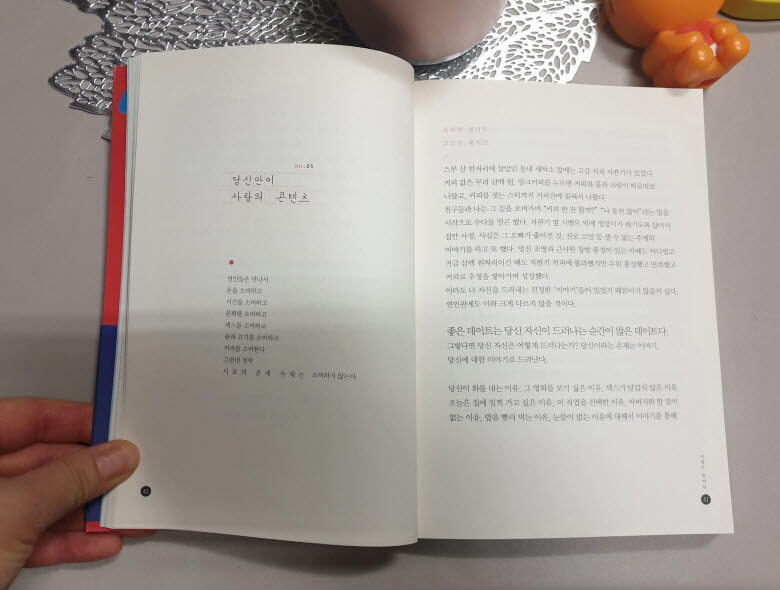 No. 05
당신만이
사랑의 콘텐츠
연인들은 만나서
돈을 소비하고
시간을 소비하고
문화를 소비하고
섹스를 소비하고
술과 고기를 소비하고
커피를 소비한다.
그런데 정작
서로의 존재 자체는 소비하지 않는다.
40
초라한 데이트
고급진 데이트
스무 살 언저리에 살았던 동네 세탁소 앞에는 고급 커피 자판기가 있었다.
커피 값은 무려 삼백 원, 밀크커피를 누르면 커피와 물과 크림이 따로따로
나왔고, 커피를 젓는 스틱까지 커피잔에 꽂혀서 나왔다.
친구들과 나는 그 길을 오며가며 "커피 한 잔 할까?" "나 동전 많아"라는 말을
시작으로 수다를 떨곤 했다. 자판기 옆 시멘트 턱에 엉덩이가 배기도록 앉아서
집안 사정, 사실은 그 오빠가 좋아진 것, 진로 고민 등 셀 수 없는 주제의
이야기를 하고 또 했다. 멋진 조명과 근사한 창밖 풍경이 있는 카페도 아니었고
지금 삼백 원짜리이긴 해도 자판기 커피에 불과했지만 우린 풍성했고 만족했고
커피로 우정을 쌓아가며 성장했다.
아마도 나 자신을 드러내는 진정한 '이야기'들이 있었기 때문이지 않을까 싶다.
연인관계도 이와 크게 다르지 않을 것이다.
좋은 데이트는 당신 자신이 드러나는 순간이 많은 데이트다.
그렇다면 당신 자신은 어떻게 드러나는가? 당신이라는 존재는 이야기,
당신에 대한 이야기로 드러난다.
당신이 화를 내는 이유, 그 영화를 보기 싫은 이유, 섹스가 달갑지 않은 이유,
오늘은 집에 일찍 가고 싶은 이유, 이 직업을 선택한 이유, 아버지와 할 말이
없는 이유, 밥을 빨리 먹는 이유, 눈물이 없는 이유에 대해서 이야기를 통해
41